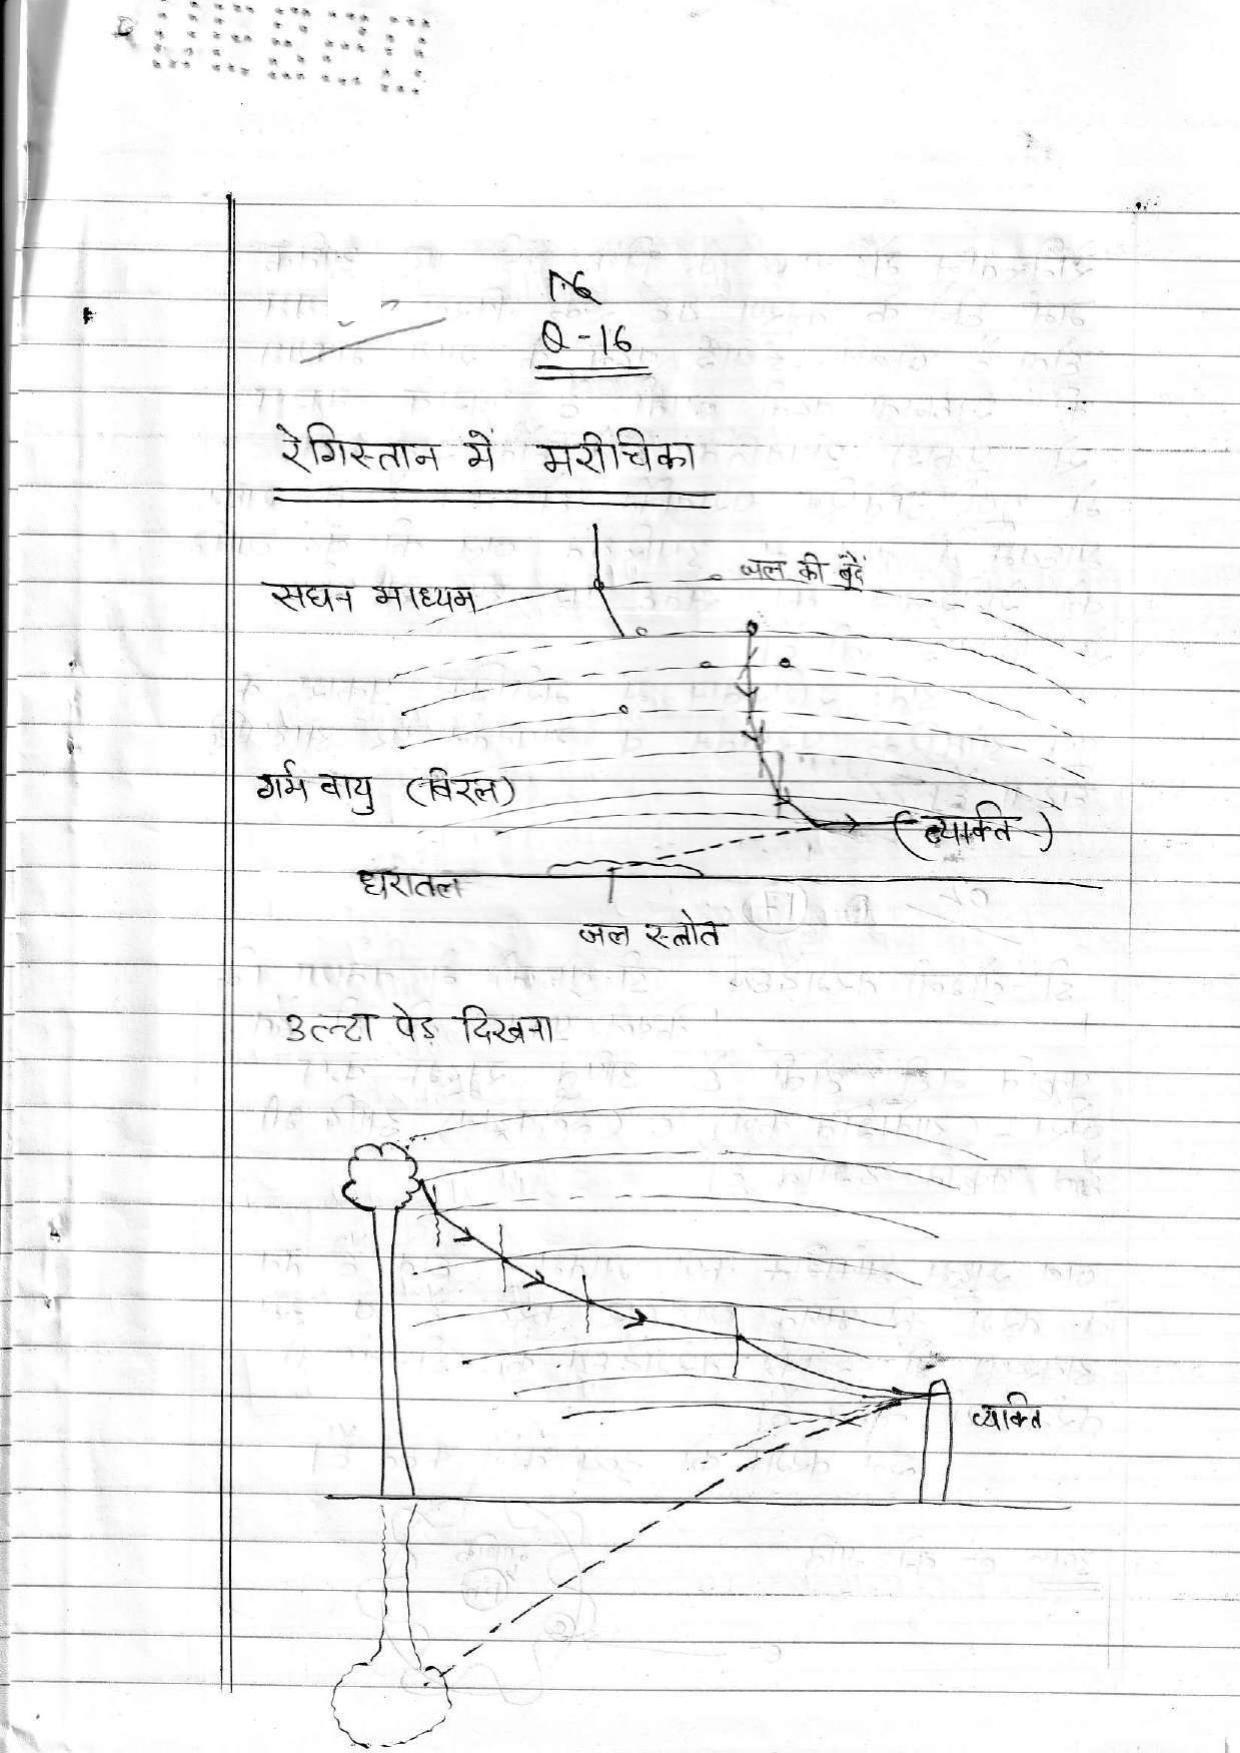 Q-16
रेगिस्तान में मरीचिका
जल की बूंदें
सघन माध्यम
गर्म वायु (विरल)
(व्यक्ति)
धरातल
जल स्त्रोत
उल्टा पेड़ दिखना
व्यक्ति